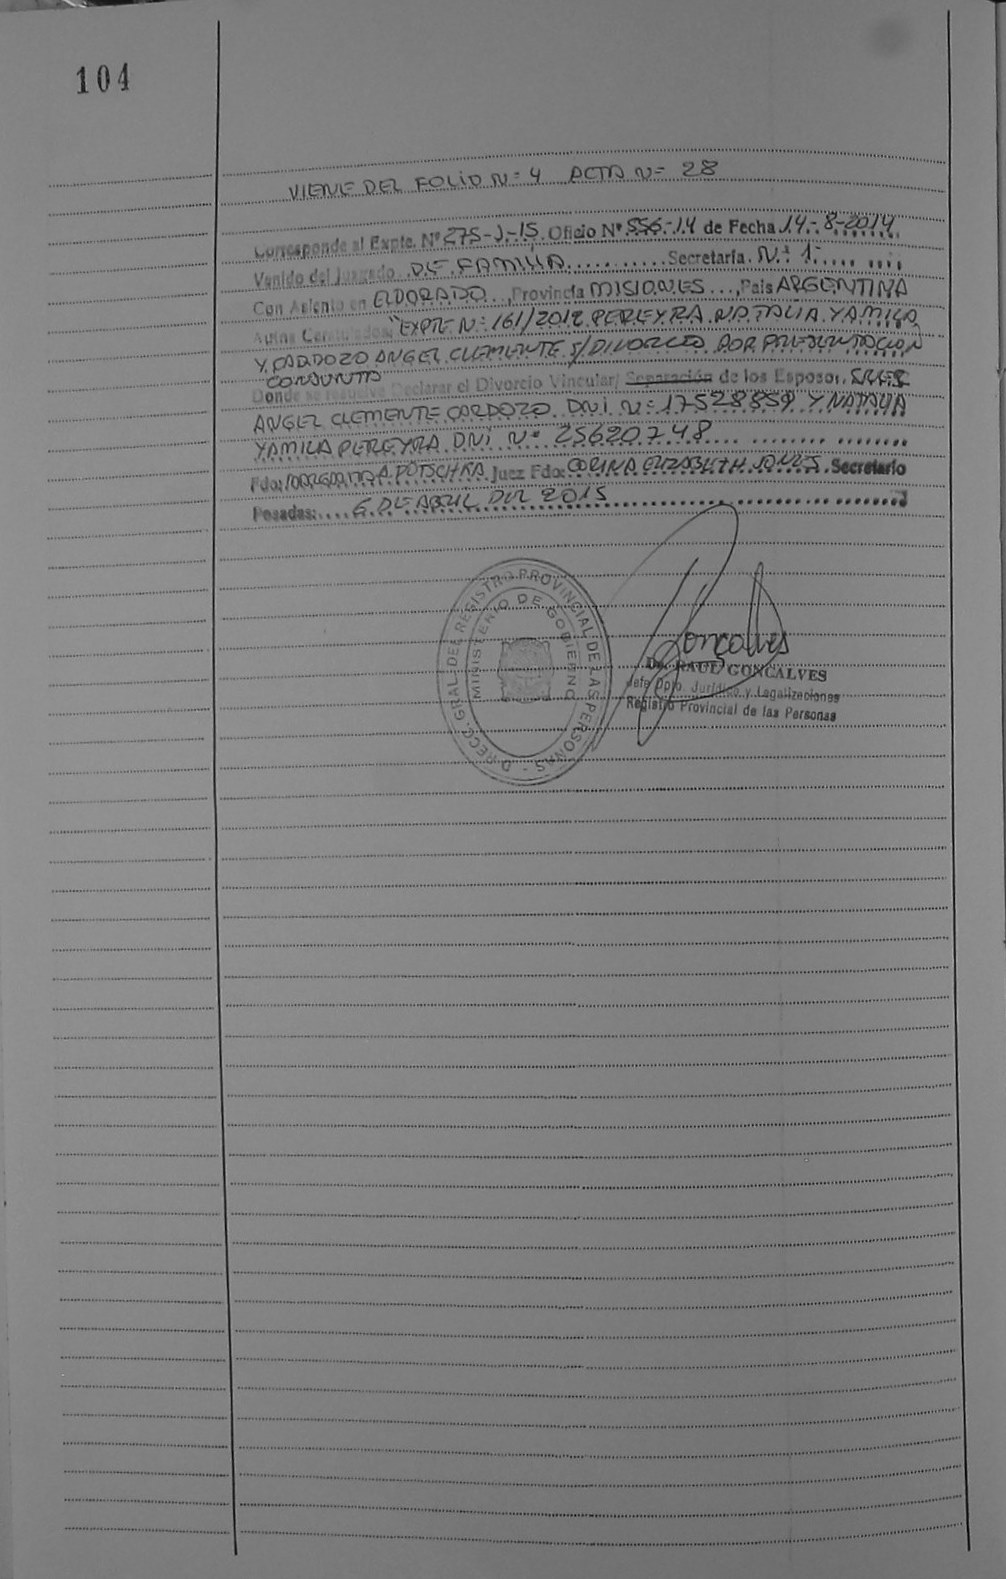 104
VIENE DEL FOLIO Nº 4 ACTA Nº 28
Corresponde al Expte. Nº 275-J-15. Oficio Nº 556-14 de Fecha 14-8-2014
Venido del Juzgado DE FAMILIA Secretaría. Nº 1
Con Asiento en ELDORADO, Provincia MISIONES, País ARGENTINA
Autos Caratulados: "EXPTE Nº 161/2012 PEREYRA NATALIA YAMILA
Y CARDOZO ANGEL CLEMENTE S/DIVORCIO POR PRESENTACION
CONJUNTA
Donde se resuelve Declarar el Divorcio Vincular/ Separación de los Esposos. SRES
ANGEL CLEMENTE CARDOZO DNI Nº 17528859 Y NATALIA
YAMILA PEREYRA DNI Nº 25620748
Fdo: MARGARITA A. POTSCHKA Juez Fdo: CORINA ELIZABETH JONES. Secretario
Posadas: 6 DE ABRIL DEL 2015
DIRECC. GRAL. DEL REGISTRO PROVINCIAL DE LAS PERSONAS
MINISTERIO DE GOBIERNO
Goncalves
Dr. RAUL GONCALVES
Jefe Dpto. Jurídico y Legalizaciones
Registro Provincial de las Personas